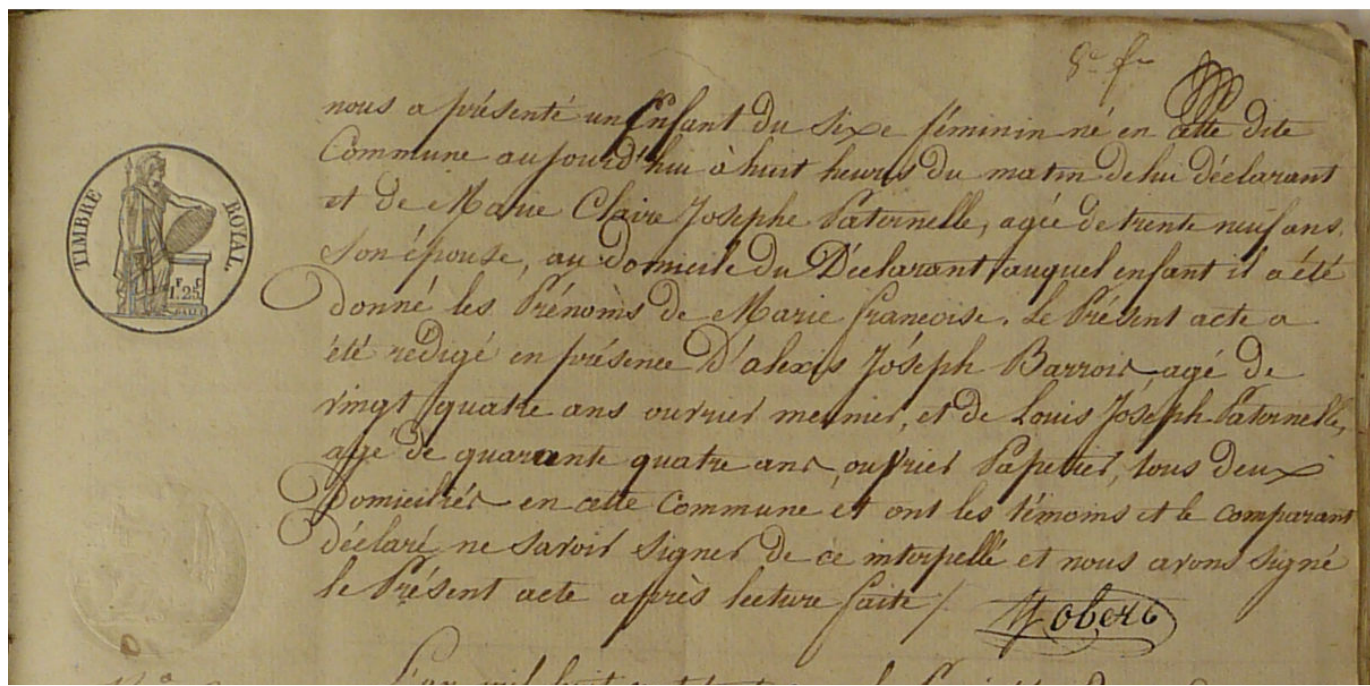 8e f
TIMBRE ROYAL.
1F. 25C
nous a présenté un Enfant du sixe féminin né en cette dite
Commune aujourd'hui à huit heures du matin de lui déclarant
et de Marie Claire Josephe Paternelle, agée de trente neuf ans.
Son épouse, au domicile du Déclarant, auquel enfant il a été
donné les Prénoms de Marie françoise. Le Présent acte a
été redigé en présence D'alexis Jóseph Barrois, agé de
vingt quatre ans ouvrier meunier, et de Louis Jóseph Paternelle,
agé de quarante quatre ans, ouvrier Papetier, tous deux
Domiciliés en cette Commune et ont les témoins et le comparant
déclaré ne Savoir Signer de ce interpellé et nous avons signé
le Présent acte après lecture faite /.